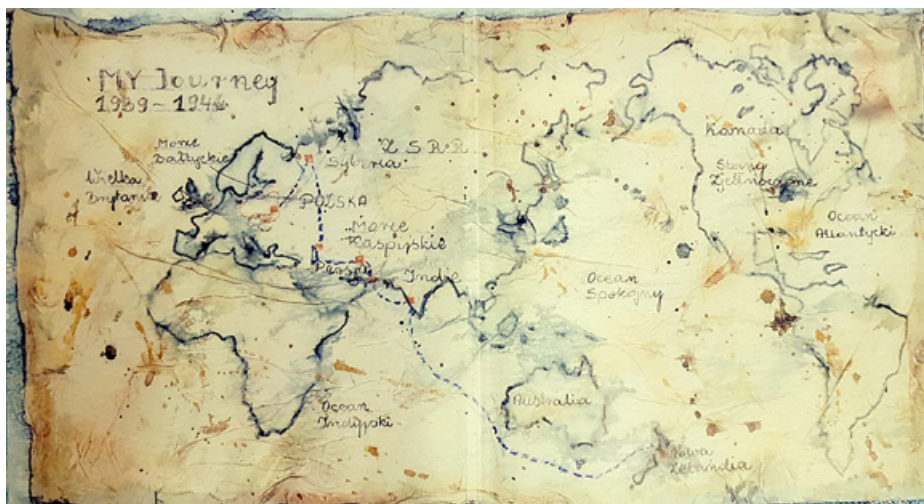 MY Journey
1939-1944
Morze
Bałtyckie
Wielka
Brytania
Syberia
Z S R R
POLSKA
Morze
Kaspijskie
Persja
Indie
Kanada
Stany
Zjednoczone
Ocean
Atlantycki
Ocean
Spokojny
Ocean
Indyjski
Australia
Nowa
Zelandia